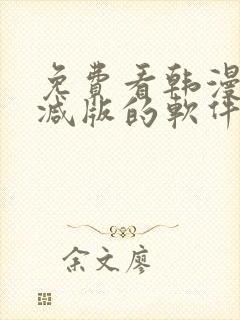 免費看韩漫
减版的軟件
余文廖